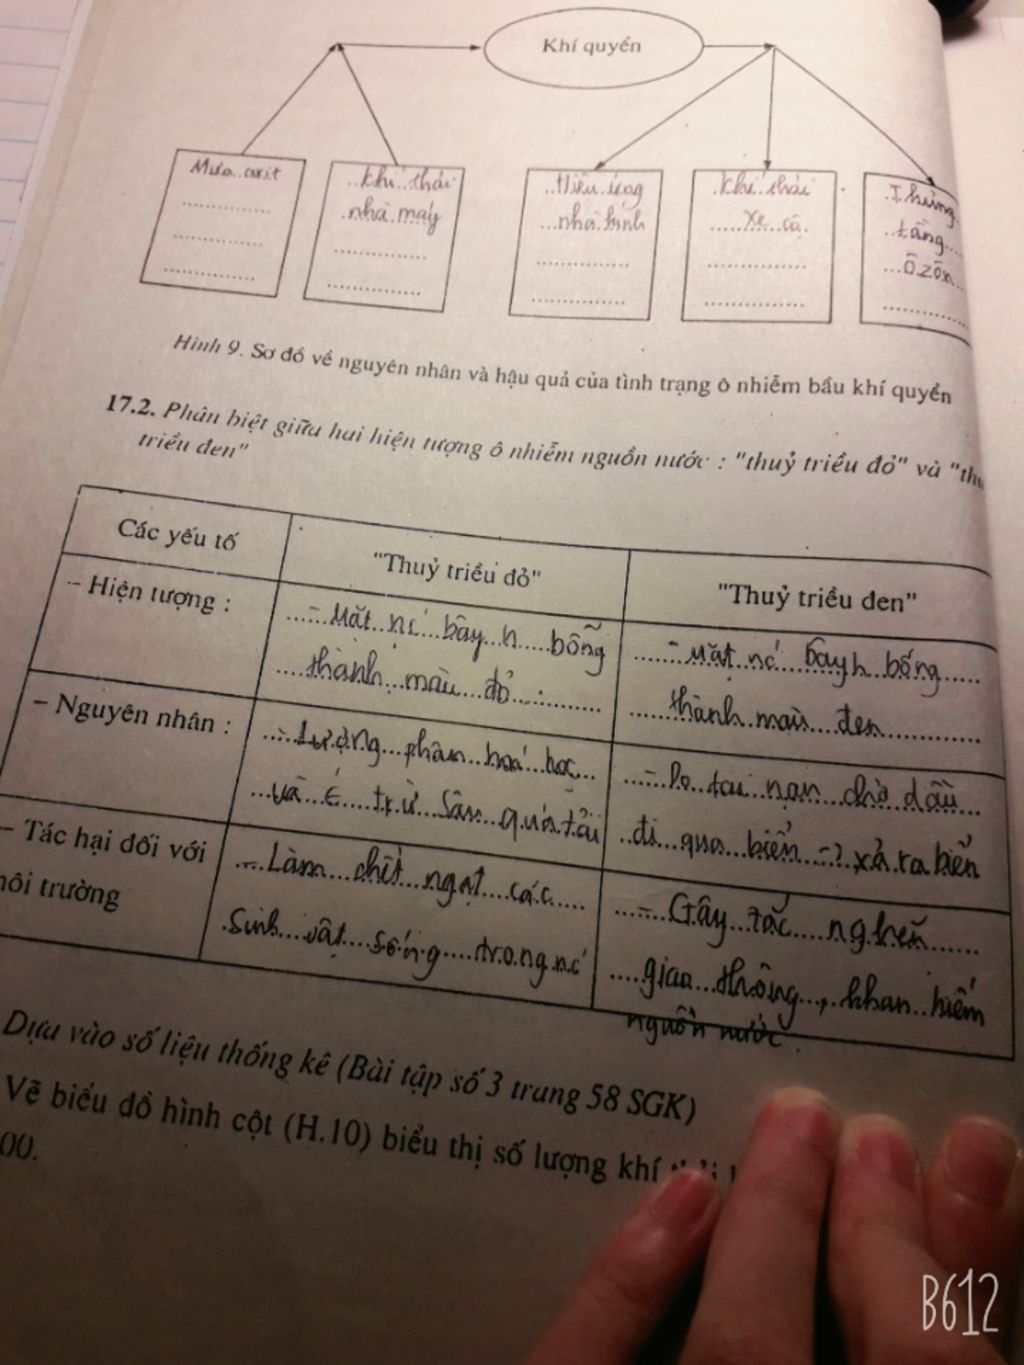 Khí quyển
Mưa axit
khí thải
nhà máy
Hiệu ứng
nhà kính
khí thải
xe cộ
Thủng
tầng
ôzôn
Hình 9. Sơ đồ về nguyên nhân và hậu quả của tình trạng ô nhiễm bầu khí quyển
17.2. Phân biệt giữa hai hiện tượng ô nhiễm nguồn nước : "thuỷ triều đỏ" và "thu
triều đen"
Các yếu tố
"Thuỷ triều đỏ"
"Thuỷ triều đen"
- Hiện tượng :
- Mặt nc bây h bỗng
thành màu đỏ
- Mặt nc bây h bỗng
thành màu đen
- Nguyên nhân :
- Lượng phân hoá học
và trừ sâu quá tải
- Do tai nạn chở dầu
đi qua biển => xả ra biển
- Tác hại đối với
môi trường
- Làm chết ngạt các
sinh vật sống trong nc
- Gây tắc nghẽn
giao thông, khan hiếm
nguồn nước
Dựa vào số liệu thống kê (Bài tập số 3 trang 58 SGK)
Vẽ biểu đồ hình cột (H.10) biểu thị số lượng khí
00.
B612